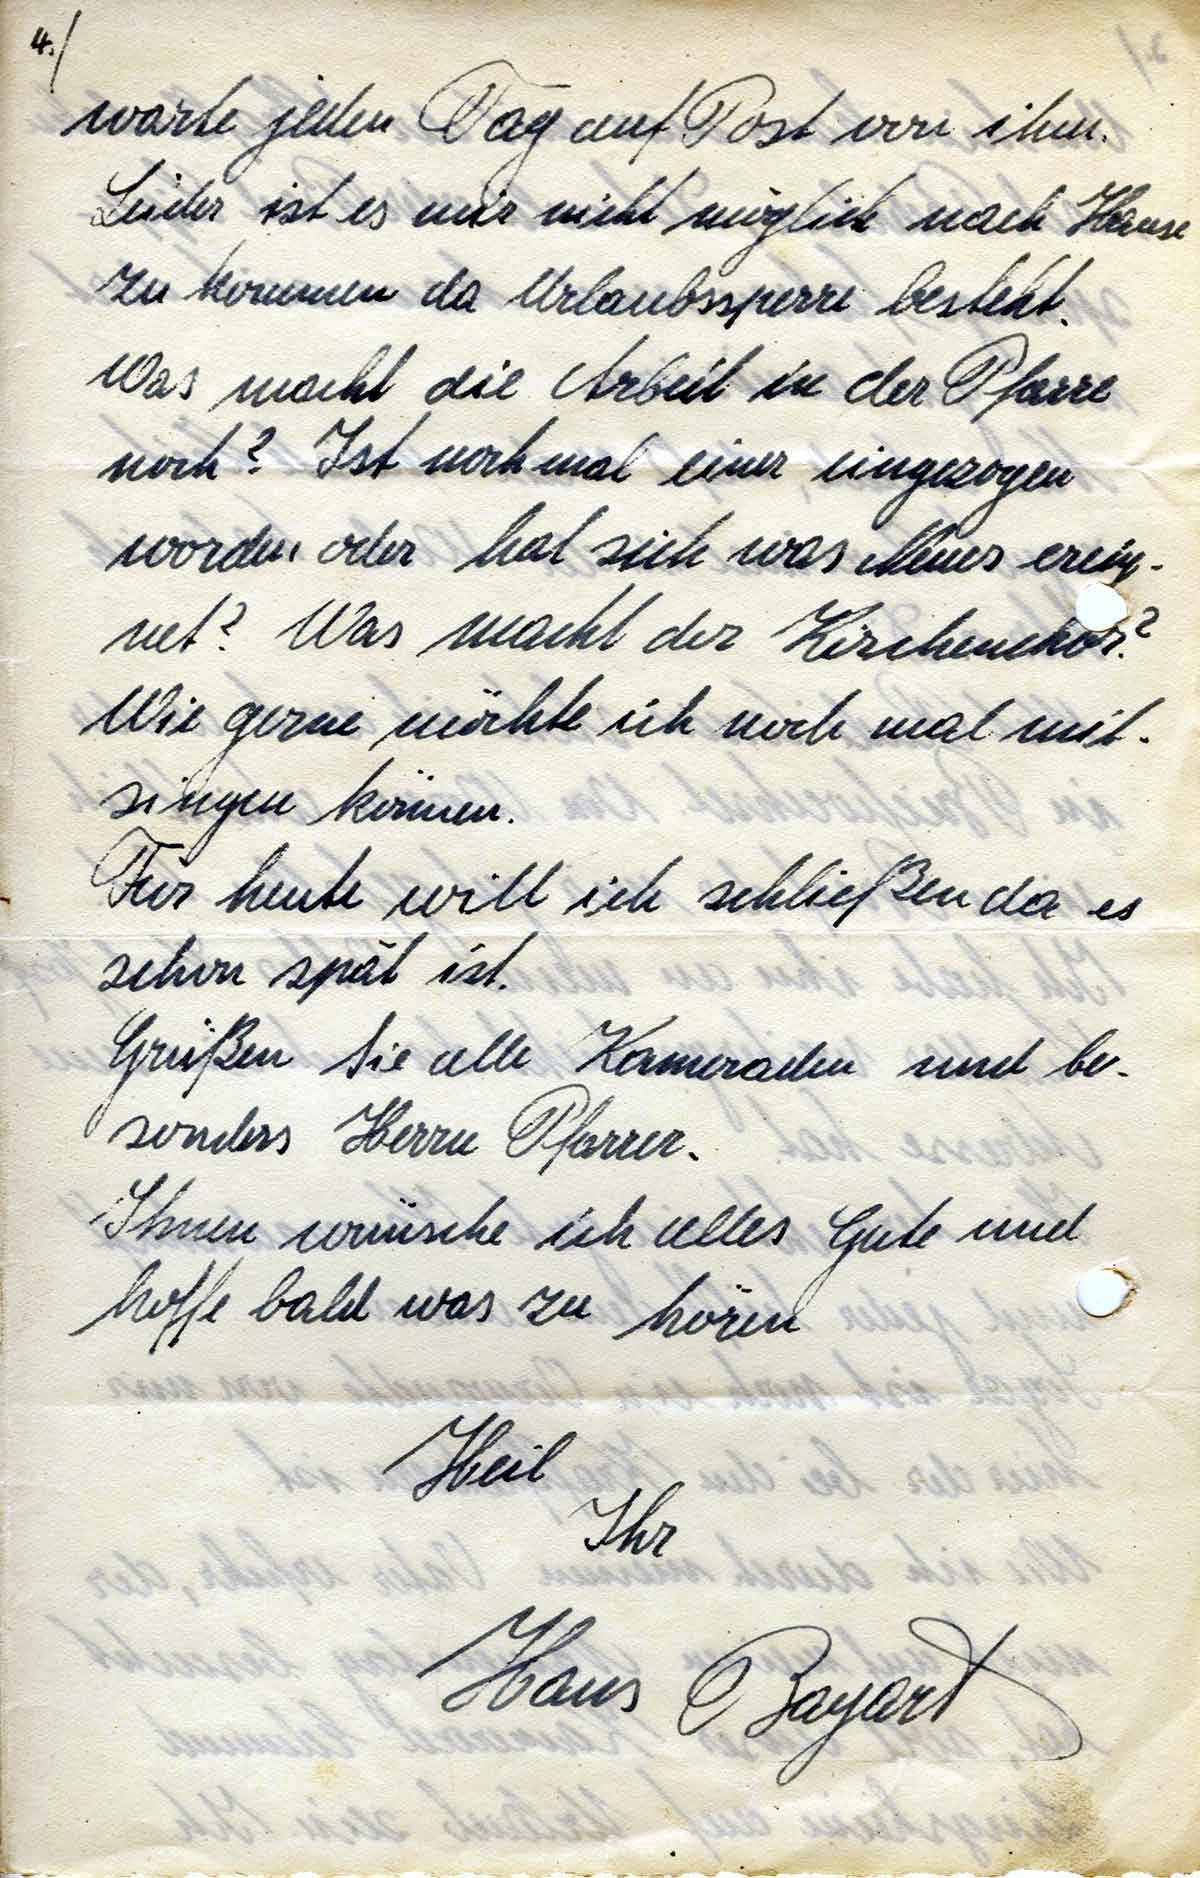 4./
warte jeden Tag auf Post von ihm.
Leider ist es mir nicht möglich nach Hause
zu kommen da Urlaubssperre besteht.
Was macht die Arbeit in der Pfarre
noch? Ist noch mal einer eingezogen
worden oder hat sich was Neues ereig-
net? Was macht der Kirchenchor?
Wie gerne möchte ich noch mal mit-
singen können.
Für heute will ich schließen da es
schon spät ist.
Grüßen Sie alle Kameraden und be-
sonders Herrn Pfarrer.
Ihnen wünsche ich alles Gute und
hoffe bald was zu hören
Heil
Ihr
Hans Bayart